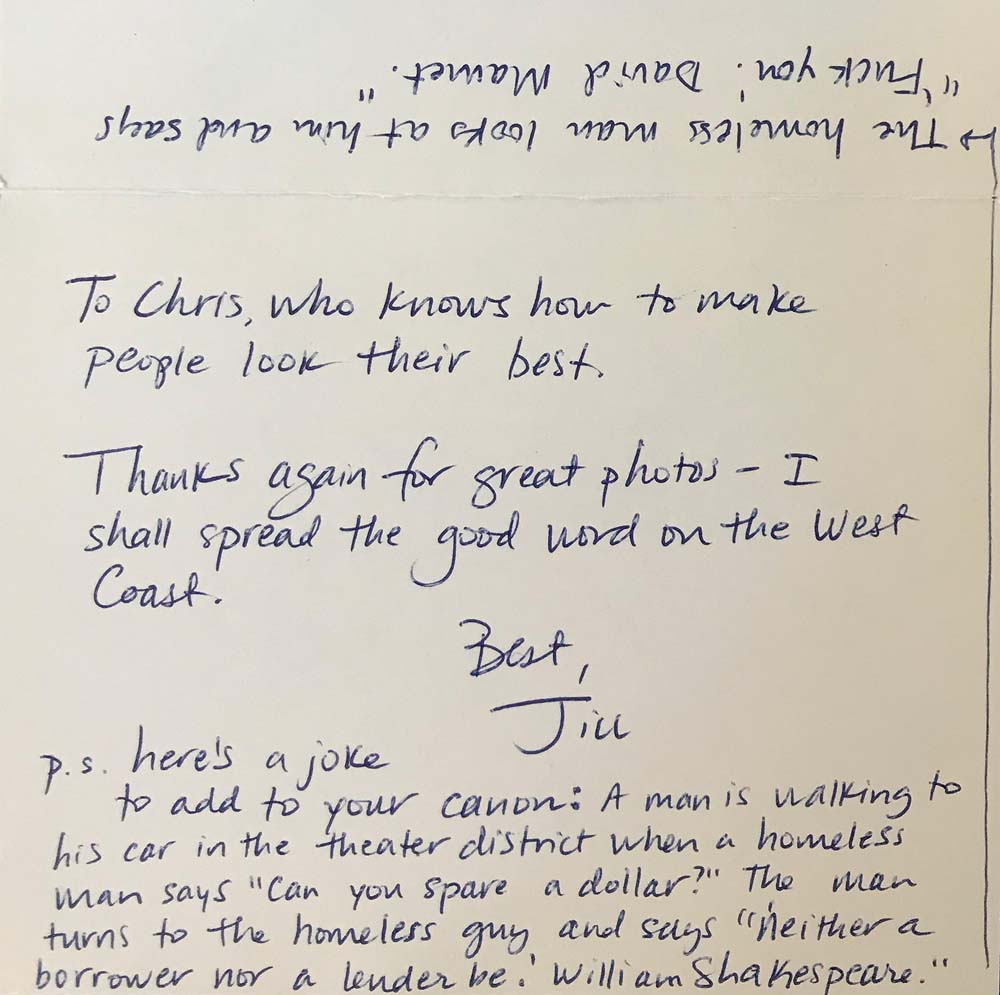 To Chris, who knows how to make
people look their best.
Thanks again for great photos – I
shall spread the good word on the West
Coast.
Best,
Jill
p.s. here's a joke
to add to your canon: A man is walking to
his car in the theater district when a homeless
man says "Can you spare a dollar?" The man
turns to the homeless guy and says "'Neither a
borrower nor a lender be.' William Shakespeare."
→ The homeless man looks at him and says
"'Fuck you.' David Mamet."